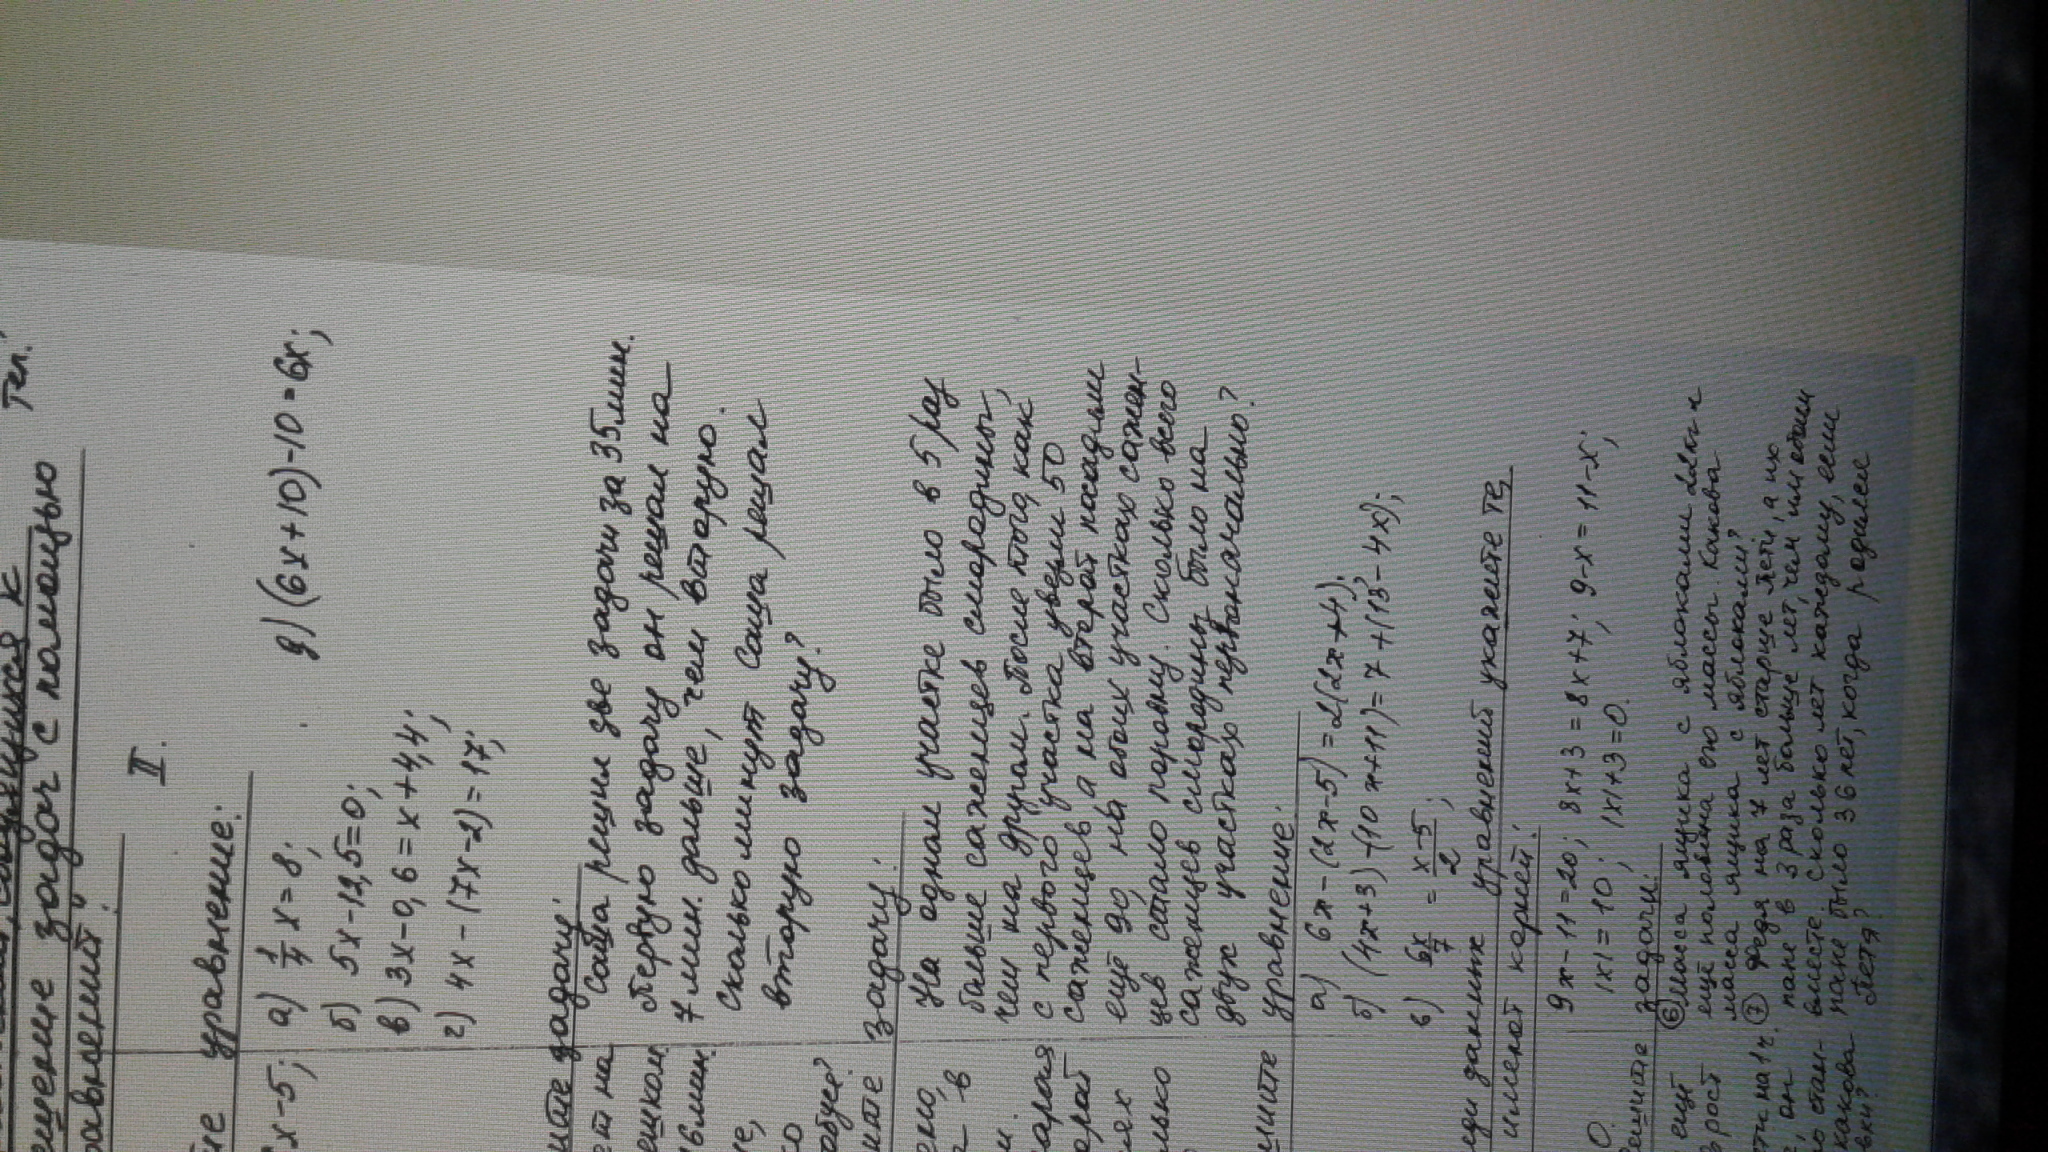 ешение задач с помощью
равнений.
II.
уравнение:
x-5; а) 1/4 x = 8; д) (6x+10)-10=6x;
б) 5x-12,5=0;
в) 3x-0,6 = x+4,4;
г) 4x-(7x-2)=17;
задачу:
ет на Саша решил две задачи за 35 мин.
ешком Первую задачу он решал на
16 мин. 7 мин. дольше, чем вторую.
Сколько минут Саша решал
вторую задачу?
задачу:
На одном участке было в 5 раз
больше саженцев смородины,
чем на другом. После того, как
с первого участка увезли 50
саженцев, а на второй посадили
ещё 90, на обоих участках сажен-
цев стало поровну. Сколько всего
саженцев смородины было на
двух участках первоначально?
уравнение:
а) 6x-(2x-5)=2(2x+4);
б) (4x+3)-(10x+11)=7+(13-4x);
в) 6x/7 = x-5/2;
данных уравнений укажите те,
имеют корней:
9x-11=20; 8x+3=8x+7; 9-x=11-x;
|x|=10; |x|+3=0.
задачи:
ещё ⑥ Масса ящика с яблоками 22кг и
рост ещё половина его массы. Какова
масса ящика с яблоками?
⑦ Федя на 7 лет старше Пети, а их
папе в 3 раза больше лет, чем им обоим
вместе. Сколько лет каждому, если
какова папе было 36 лет, когда родился
Петя?